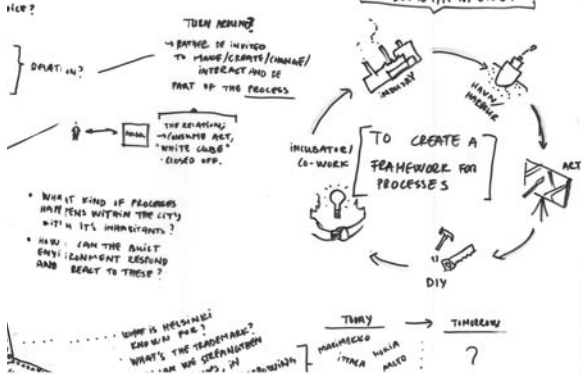 TURN AROUND?
→ RATHER BE INVITED
TO MAKE/CREATE/CHANGE/
INTERACT AND BE
PART OF THE PROCESS
RELATION?
THE RELATION;
→ CONSUME ART,
"WHITE CUBE"
- CLOSED OFF.
• WHAT KIND OF PROCESSES
HAPPENS WITHIN THE CITY,
WITH IT'S INHABITANTS?
• HOW CAN THE BUILT
ENVIRONMENT RESPOND
AND REACT TO THESE?
INDUSTRY
HAVN/
HARBOUR
ART
DIY
INCUBATOR/
CO-WORK
TO CREATE A
FRAMEWORK FOR
PROCESSES
WHAT IS HELSINKI
KNOWN FOR?
WHAT'S THE TRADEMARK?
WE STRENGTHEN
IN
TODAY → TOMORROW
MARIMEKKO
NOKIA
IITTALA
AALTO
?